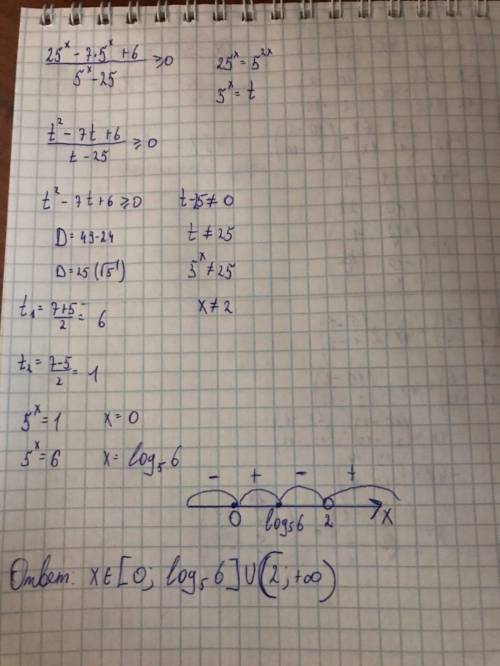 (25ˣ - 7·5ˣ + 6)/(5ˣ - 25) ≥ 0
25ˣ = 5²ˣ
5ˣ = t
(t² - 7t + 6)/(t - 25) ≥ 0
t² - 7t + 6 ≥ 0
t - 25 ≠ 0
D = 49 - 24
t ≠ 25
D = 25 (√5¹)
5ˣ ≠ 25
t₁ = (7+5)/2 = 6
x ≠ 2
t₂ = (7-5)/2 = 1
5ˣ = 1 x = 0
5ˣ = 6 x = log₅6
- + - +
0 log₅6 2 X
Ответ: X ∈ [0; log₅6] ∪ (2; +∞)